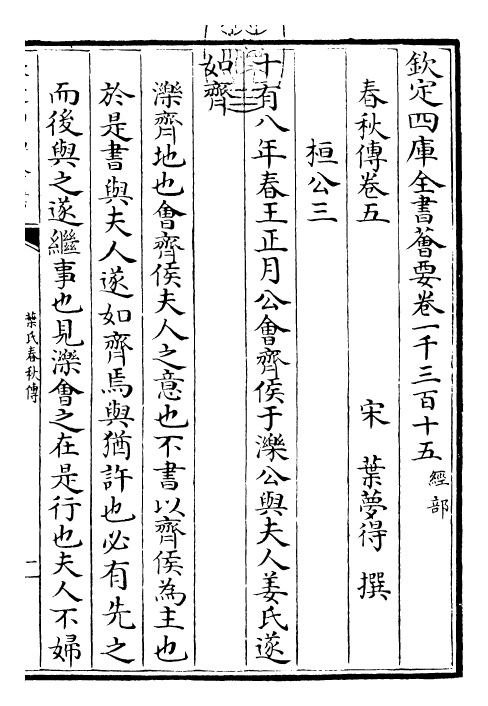 欽定四庫全書薈要卷一千三百十五 經部
春秋傳卷五
宋 葉夢得 撰
桓公三
十有八年春王正月公會齊侯于濼公與夫人姜氏遂
如齊
濼齊地也會齊侯夫人之意也不書以齊侯為主也
於是書與夫人遂如齊焉與猶許也必有先之
而後與之遂繼事也見濼會之在是行也夫人不婦
葉氏春秋傳
一